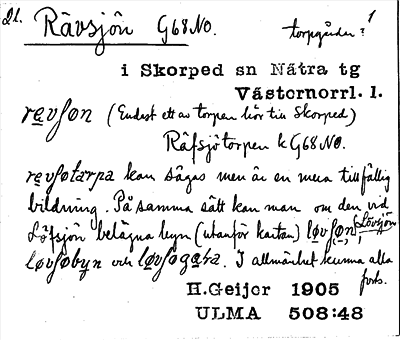 21. Rävsjön G68NO. torpgårdar? 1
i Skorped sn Nätra tg
Västernorrl. l.
revsøn (Endast ett av torpen hör till Skorped)
Räfsjötorpen k G68NO.
revsøtårpa kan sägas men är en mera tillfällig
bildning. På samma sätt kan man om den vid
Löfsjön belägna byn (utanför kartan) løvsøn, Lövsjön
løvsøbyn och løvsøgɑra. I allmänhet kunna alla
forts.
H.Geijer 1905
ULMA 508:48